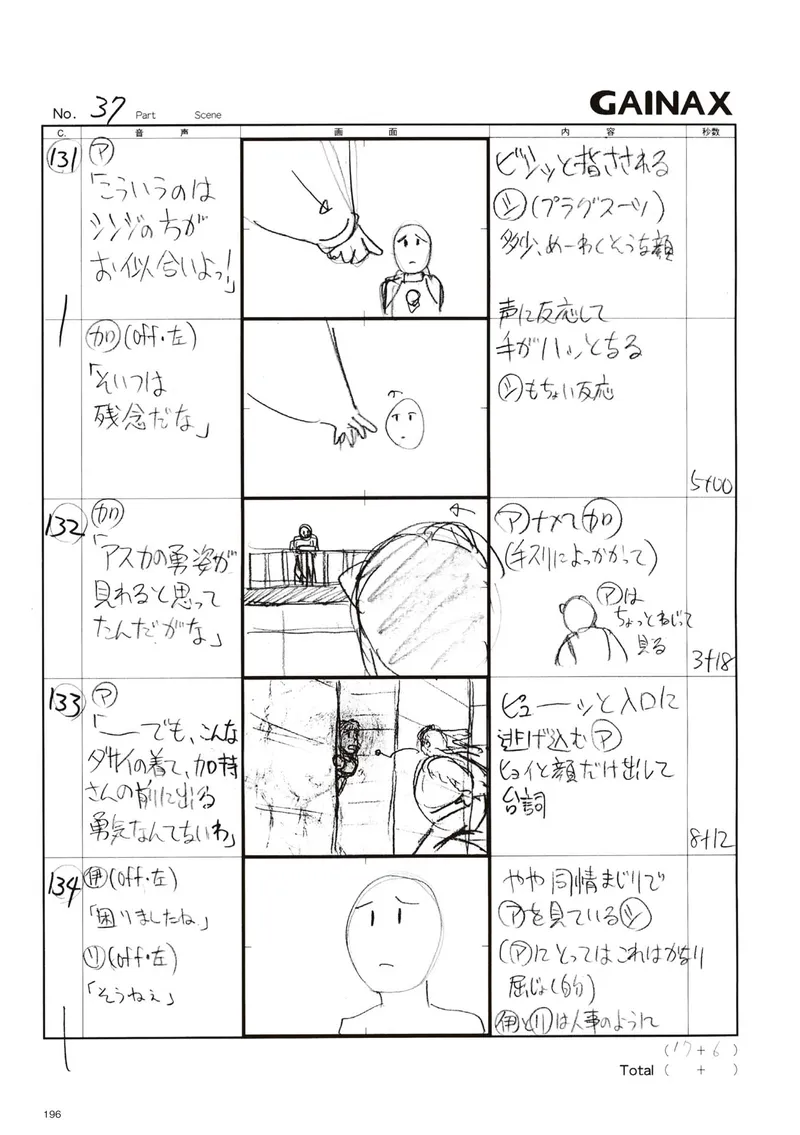 No. 37 Part Scene
GAINAX
C.
音 声
画 面
内 容
秒数
131
ア
「こういうのは
シンジの方が
お似合いよっ!」
ビシッと指さされる
シ(プラグスーツ)
多少、めーわくそうな顔
加(off・左)
「そいつは
残念だな」
声に反応して
手がハッとなる
シもちょい反応
5+00
132
加
「アスカの勇姿が
見れると思って
たんだがな」
アナメで加
(手スリによっかかって)
アは
ちょっとねじって
見る
3+18
133
ア
「――でも、こんな
ダサイの着て、加持
さんの前に出る
勇気なんてないわ」
ピューーッと入口に
逃げ込むア
ヒョイと顔だけ出して
台詞
8+12
134
伊(off・左)
「困りましたね」
リ(off・左)
「そうねぇ」
やや同情まじりで
アを見ているシ
(アにとってはこれはかなり
屈じょく的)
伊とリは人事のように
(17+6)
Total ( + )
196